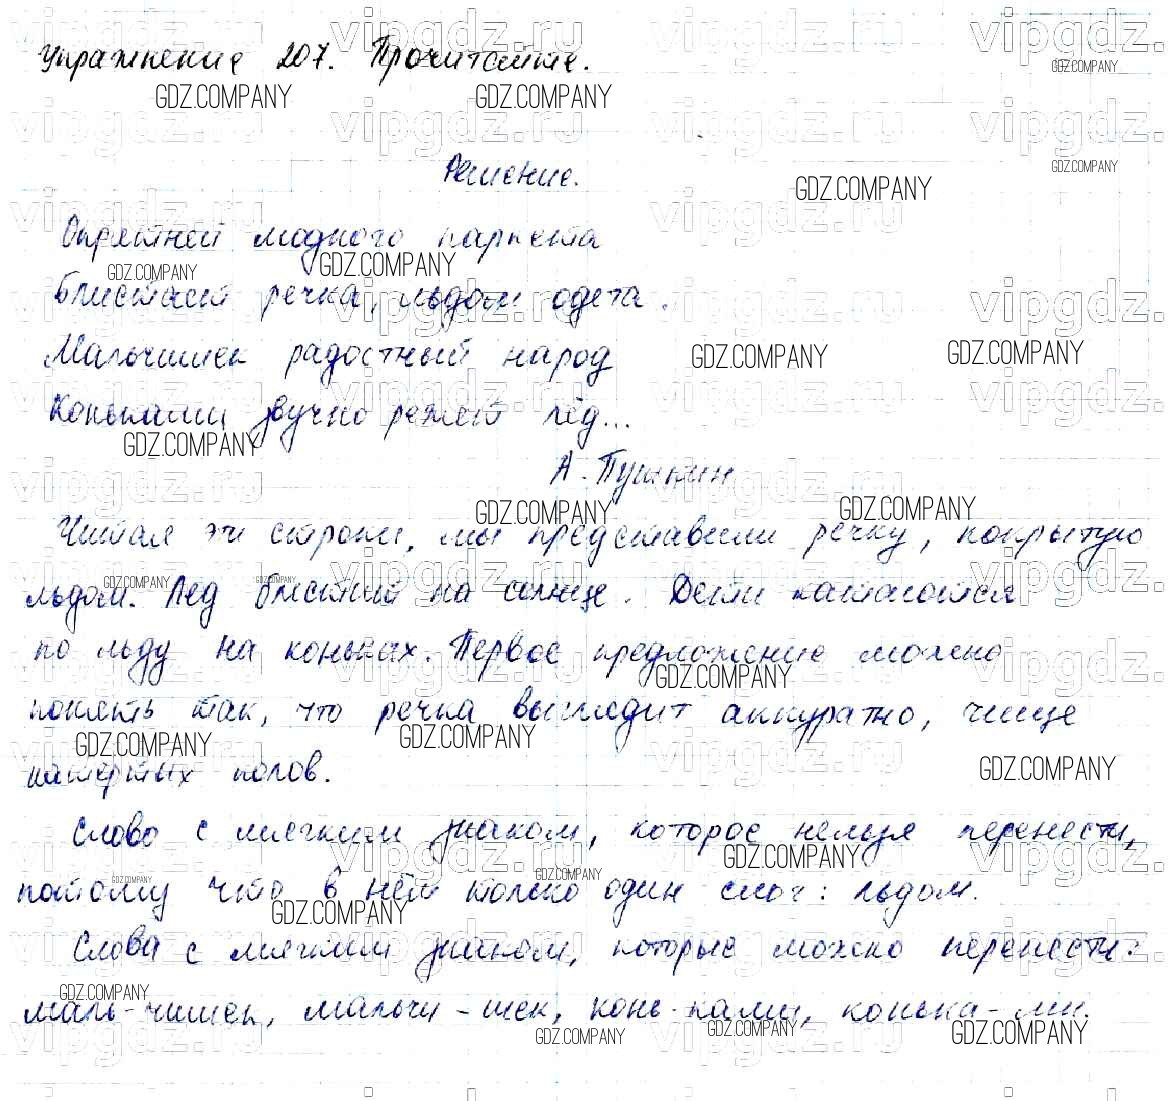 Упражнение 207. Прочитайте.
Решение.
Опрятней модного паркета
Блистает речка, льдом одета.
Мальчишек радостный народ
Коньками звучно режет лёд...
А. Пушкин
Читая эти строки, мы представили речку, покрытую
льдом. Лёд блестит на солнце. Дети катаются
по льду на коньках. Первое предложение можно
понять так, что речка выглядит аккуратно, чище
натёртых полов.
Слово с мягким знаком, которое нельзя перенести,
потому что в нём только один слог: льдом.
Слова с мягким знаком, которые можно перенести:
маль-чишек, мальчи-шек, конь-ками, конька-ми.
vipgdz.ru
GDZ.COMPANY